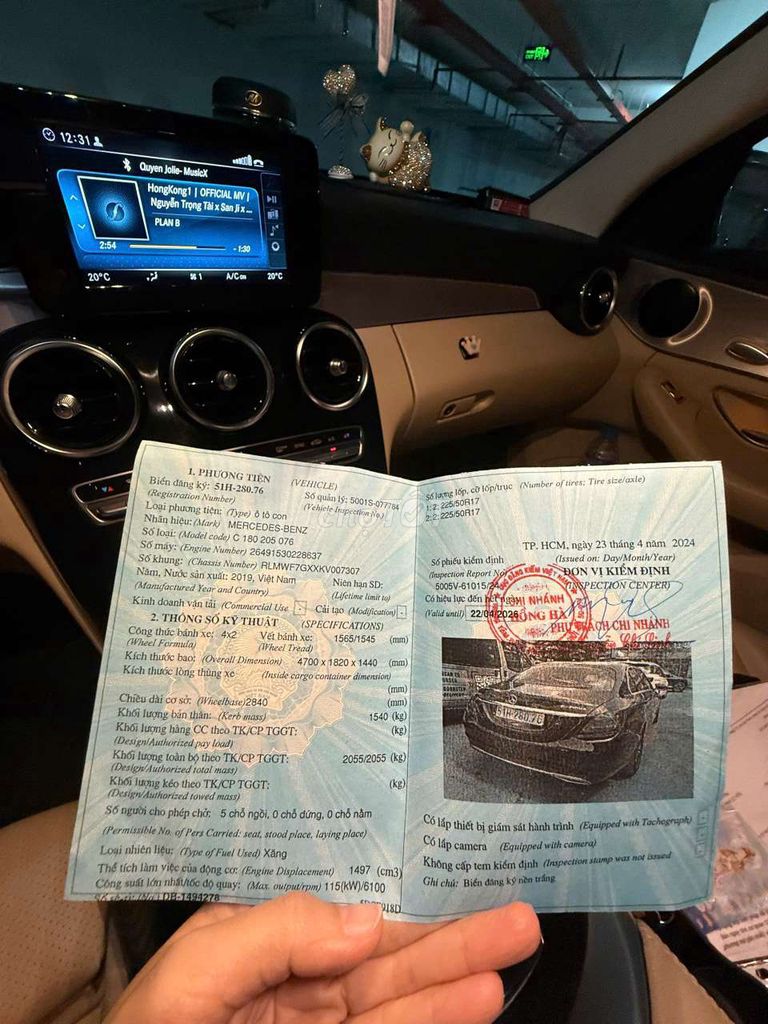 12:31
Quyen Jolie- MusicX
HongKong1 | OFFICIAL MV |
Nguyễn Trọng Tài x San Ji x ...
PLAN B
2:54
- 1:30
20°C
1
A/C on
20°C
1. PHƯƠNG TIỆN (VEHICLE)
Biển đăng ký: 51H-280.76
(Registration Number)
Số quản lý: 5001S-077764
(Vehicle Inspection No.)
Loại phương tiện: (Type) ô tô con
Nhãn hiệu: (Mark) MERCEDES-BENZ
Số loại: (Model code) C 180 205 076
Số máy: (Engine Number) 26491530228637
Số khung: (Chassis Number) RLMWF7GXXKV007307
Năm, Nước sản xuất: 2019, Việt Nam
(Manufactured Year and Country)
Niên hạn SD:
(Lifetime limit to)
Kinh doanh vận tải (Commercial Use) - Cải tạo (Modification) -
2. THÔNG SỐ KỸ THUẬT (SPECIFICATIONS)
Công thức bánh xe: 4x2
(Wheel Formula)
Vết bánh xe: 1565/1545 (mm)
(Wheel Tread)
Kích thước bao: (Overall Dimension) 4700 x 1820 x 1440 (mm)
Kích thước lòng thùng xe (Inside cargo container dimension)
(mm)
Chiều dài cơ sở: (Wheelbase) 2840 (mm)
Khối lượng bản thân: (Kerb mass) 1540 (kg)
Khối lượng hàng CC theo TK/CP TGGT: (kg)
(Design/Authorized pay load)
Khối lượng toàn bộ theo TK/CP TGGT: 2055/2055 (kg)
(Design/Authorized total mass)
Khối lượng kéo theo TK/CP TGGT: (kg)
(Design/Authorized towed mass)
Số người cho phép chở: 5 chỗ ngồi, 0 chỗ đứng, 0 chỗ nằm
(Permissible No. of Pers Carried: seat, stood place, laying place)
Loại nhiên liệu: (Type of Fuel Used) Xăng
Thể tích làm việc của động cơ: (Engine Displacement) 1497 (cm3)
Công suất lớn nhất/tốc độ quay: (Max. output/rpm) 115(kW)/6100
DB-1494276
Số lượng lốp, cỡ lốp/trục (Number of tires; Tire size/axle)
1: 2: 225/50R17
2: 2: 225/50R17
TP. HCM, ngày 23 tháng 4 năm 2024
(Issued on: Day/Month/Year)
Số phiếu kiểm định
(Inspection Report No)
5005V-61015/24
ĐƠN VỊ KIỂM ĐỊNH
(INSPECTION CENTER)
Có hiệu lực đến hết ngày
(Valid until) 22/04/2026
CHI NHÁNH
HỒNG HÀ
PHỤ TRÁCH CHI NHÁNH
51H-280.76
Có lắp thiết bị giám sát hành trình (Equipped with Tachograph)
Có lắp camera (Equipped with camera)
Không cấp tem kiểm định (Inspection stamp was not issued
Ghi chú: Biển đăng ký nền trắng
chợTỐT